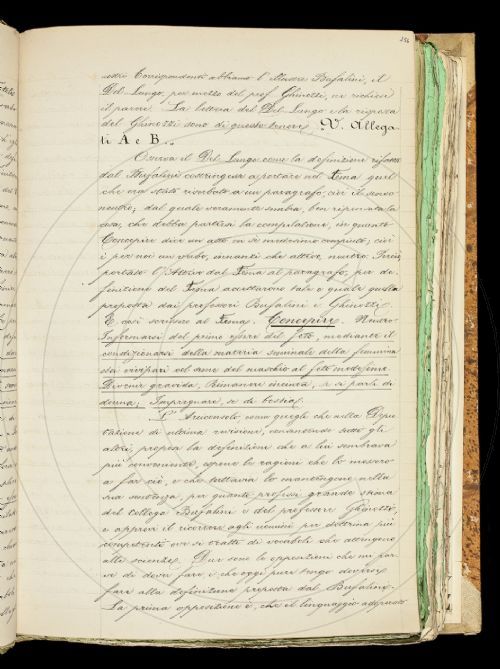 256
nostri Corrispondenti abbiamo l'illustre Bufalini, il
Del-Lungo, per mezzo del prof. Ghinozzi, ne richiese
il parere. La lettera del Del Lungo e la risposta
del Ghinozzi sono di questo tenore V. Allega-
ti A e B.
Osserva il Del Lungo come la definizione
dal Bufalini costringesse a portare nel Tema quel
che era stato riserbato a un paragrafo, cioè il senso
neutro; dal quale veramente sembra, ben ripensata la
cosa, che debba partirsi la compilazione, in quanto
Concepire dice un atto in se medesimo compiuto, cioè
è per noi un verbo, innanzi che attivo, neutro. Perciò
portato l'Attivo dal Tema al paragrafo, per de-
finizione del Tema accettarono tale e quale quella
proposta dai professori Bufalini e Ghinozzi.
E così scrissero al Tema. Concepire. Neutro.
Informarsi del primo essere del feto, mediante il
condizionarsi della materia seminale della femmina
dei vivipari col seme del maschio al feto medesimo.
Divenir gravida, Rimanere incinta, se si parla di
donna; Impregnare, se di bestia.
L'Arciconsolo come quegli che nella Depu-
tazione di ultima revisione, consentendo tutti gli
altri, propose la definizione che a lui sembrava
più conveniente, espone le ragioni che lo mossero
a far ciò, e che tuttavia lo mantengono nella
sua sentenza, per quanto professi grande stima
del collega Bufalini e del professore Ghinozzi,
e approvi il ricorrere agli uomini per dottrina più
competenti ove si tratti di vocaboli che attengono
alle scienze. Due sono le opposizioni che mi par-
ve di dover fare, e che oggi pure tengo doversi
fare alla definizione proposta dal Bufalini.
La prima opposizione è, che il linguaggio adoperato